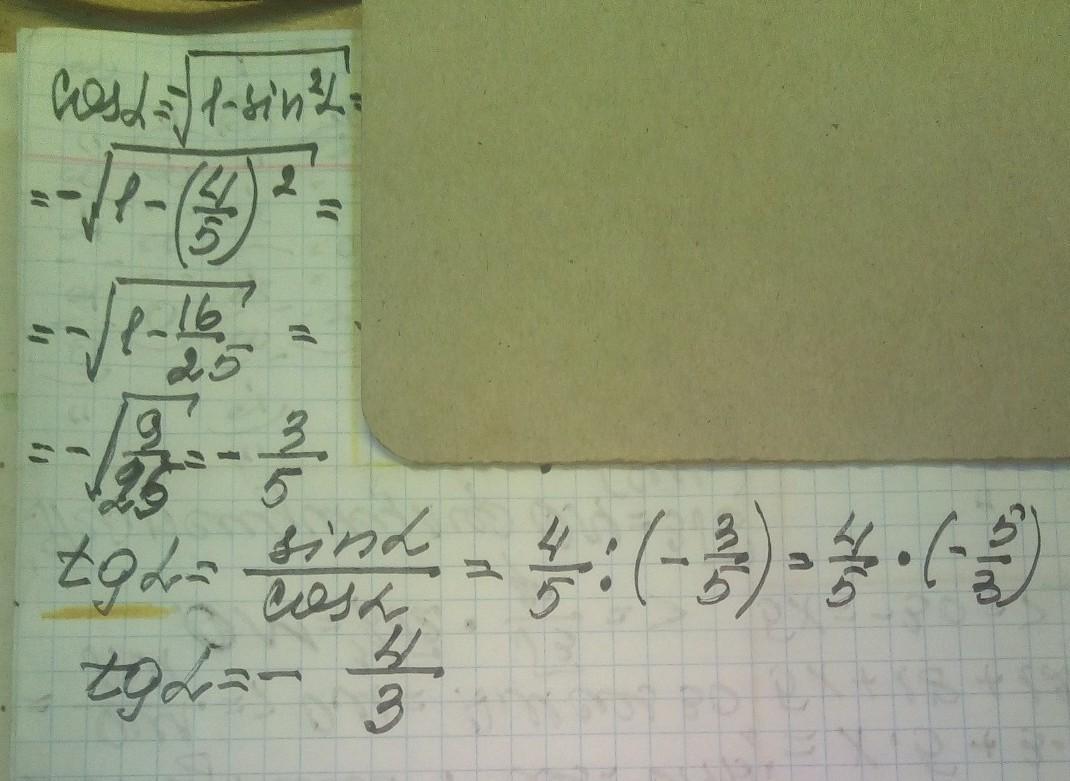 cosα=-√1-sin²α=
=-√1-(4/5)²=
=-√1-16/25 =
=-√9/25=-3/5
tgα= sinα/cosα = 4/5:(-3/5)=4/5·(-5/3)
tgα=-4/3